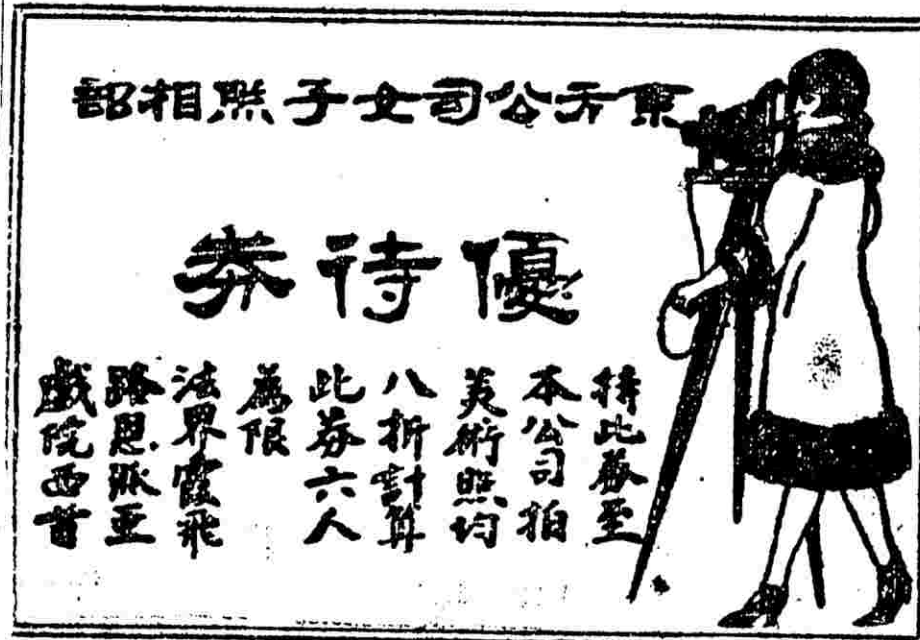 東方公司女子照相部
優待券
持此券至
本公司拍
美術照均
八折計算
此券六人
為限
法界霞飛
路恩派亞
戲院西首